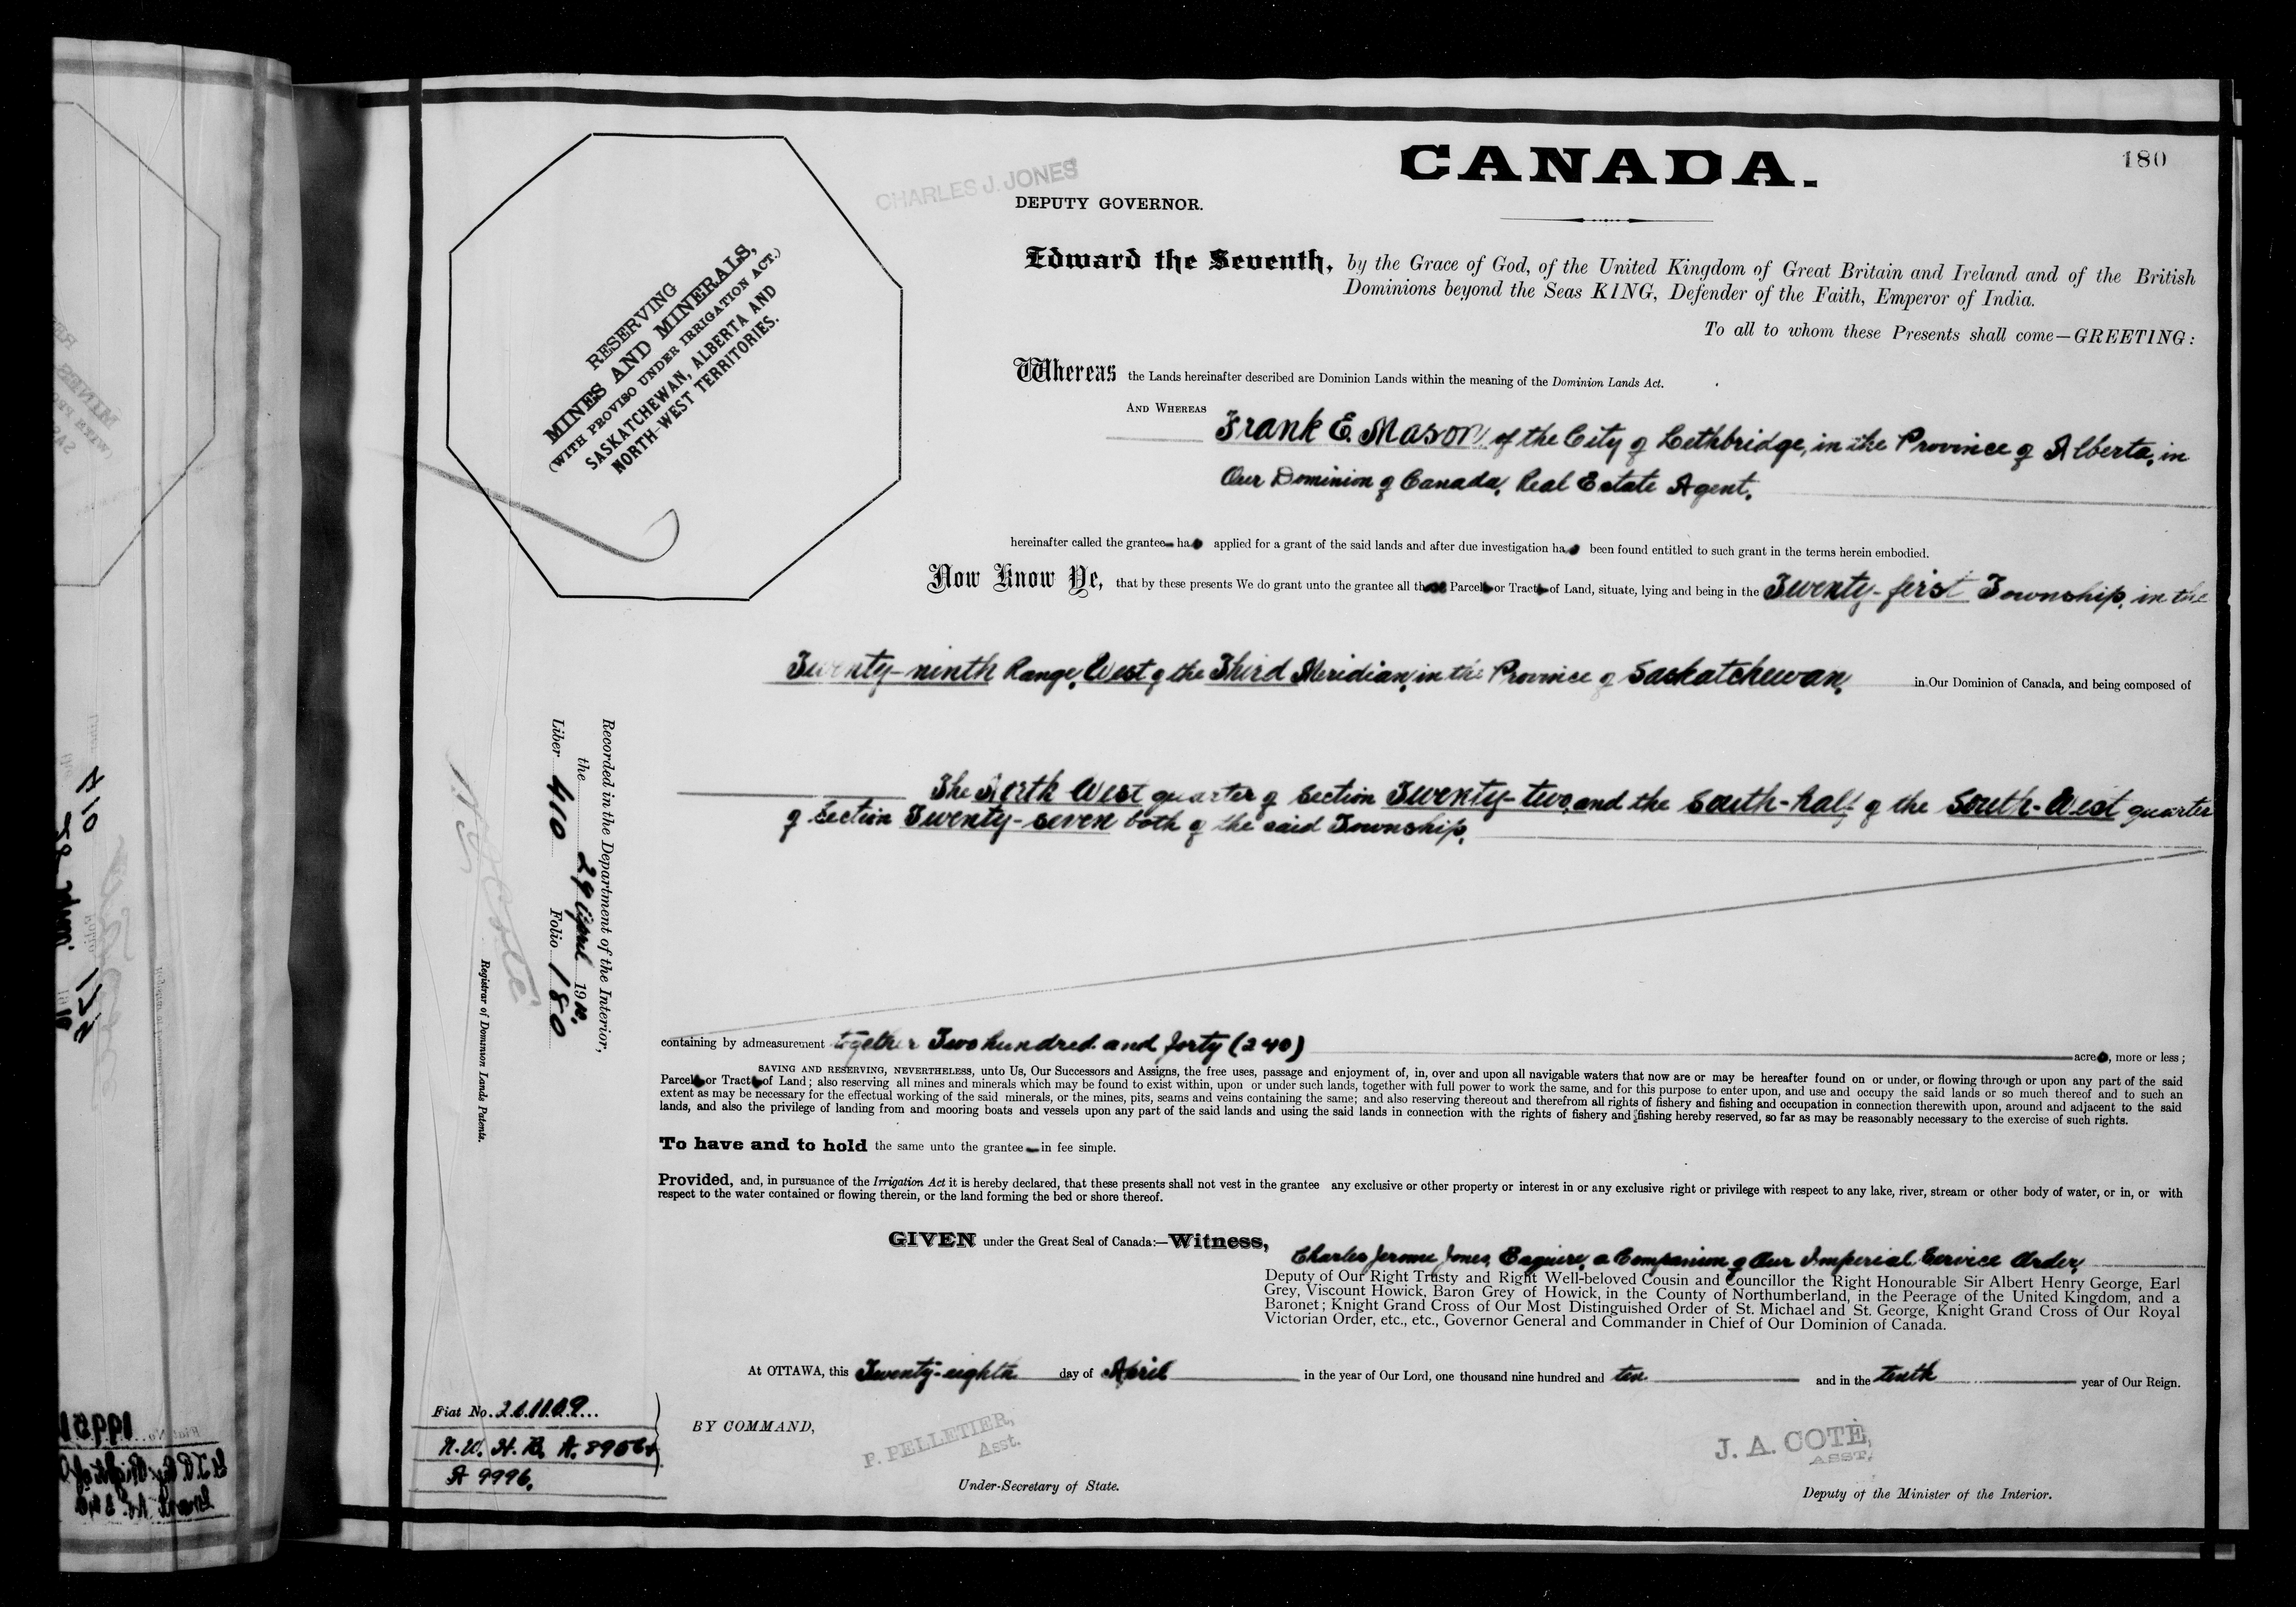 CANADA.
180
CHARLES J. JONES
DEPUTY GOVERNOR.
RESERVING
MINES AND MINERALS,
(WITH PROVISO UNDER IRRIGATION ACT.)
SASKATCHEWAN, ALBERTA AND
NORTH-WEST TERRITORIES.
Edward the Seventh, by the Grace of God, of the United Kingdom of Great Britain and Ireland and of the British
Dominions beyond the Seas KING, Defender of the Faith, Emperor of India.
To all to whom these Presents shall come—GREETING:
Whereas the Lands hereinafter described are Dominion Lands within the meaning of the Dominion Lands Act.
AND WHEREAS Frank E. Mason, of the City of Lethbridge, in the Province of Alberta, in
Our Dominion of Canada, Real Estate Agent,
hereinafter called the grantee has applied for a grant of the said lands and after due investigation has been found entitled to such grant in the terms herein embodied.
Now Know Ye, that by these presents We do grant unto the grantee all those Parcels or Tracts of Land, situate, lying and being in the Twenty-first Township, in the
Twenty-ninth Range, West of the Third Meridian, in the Province of Saskatchewan, in Our Dominion of Canada, and being composed of
The North West quarter of Section Twenty-two, and the South-half of the South-West quarter
of Section Twenty-seven both of the said Township,
containing by admeasurement together Two hundred and forty (240) acres, more or less;
SAVING AND RESERVING, NEVERTHELESS, unto Us, Our Successors and Assigns, the free uses, passage and enjoyment of, in, over and upon all navigable waters that now are or may be hereafter found on or under, or flowing through or upon any part of the said
Parcels or Tracts of Land; also reserving all mines and minerals which may be found to exist within, upon or under such lands, together with full power to work the same, and for this purpose to enter upon, and use and occupy the said lands or so much thereof and to such an
extent as may be necessary for the effectual working of the said minerals, or the mines, pits, seams and veins containing the same; and also reserving thereout and therefrom all rights of fishery and fishing and occupation in connection therewith upon, around and adjacent to the said
lands, and also the privilege of landing from and mooring boats and vessels upon any part of the said lands and using the said lands in connection with the rights of fishery and fishing hereby reserved, so far as may be reasonably necessary to the exercise of such rights.
To have and to hold the same unto the grantee in fee simple.
Provided, and, in pursuance of the Irrigation Act it is hereby declared, that these presents shall not vest in the grantee any exclusive or other property or interest in or any exclusive right or privilege with respect to any lake, river, stream or other body of water, or in, or with
respect to the water contained or flowing therein, or the land forming the bed or shore thereof.
GIVEN under the Great Seal of Canada:—Witness,
Charles Jerome Jones, Esquire, a Companion of Our Imperial Service Order,
Deputy of Our Right Trusty and Right Well-beloved Cousin and Councillor the Right Honourable Sir Albert Henry George, Earl
Grey, Viscount Howick, Baron Grey of Howick, in the County of Northumberland, in the Peerage of the United Kingdom, and a
Baronet; Knight Grand Cross of Our Most Distinguished Order of St. Michael and St. George, Knight Grand Cross of Our Royal
Victorian Order, etc., etc., Governor General and Commander in Chief of Our Dominion of Canada.
At OTTAWA, this Twenty-eighth day of April in the year of Our Lord, one thousand nine hundred and ten and in the tenth year of Our Reign.
BY COMMAND,
P. PELLETIER,
Asst.
Under-Secretary of State.
J. A. COTÉ,
ASST,
Deputy of the Minister of the Interior.
Recorded in the Department of the Interior,
the 29 April 1910.
Liber 410 Folio 180
N O Coté
Registrar of Dominion Lands Patents.
Fiat No.
N.W. H. B.
A 9996.